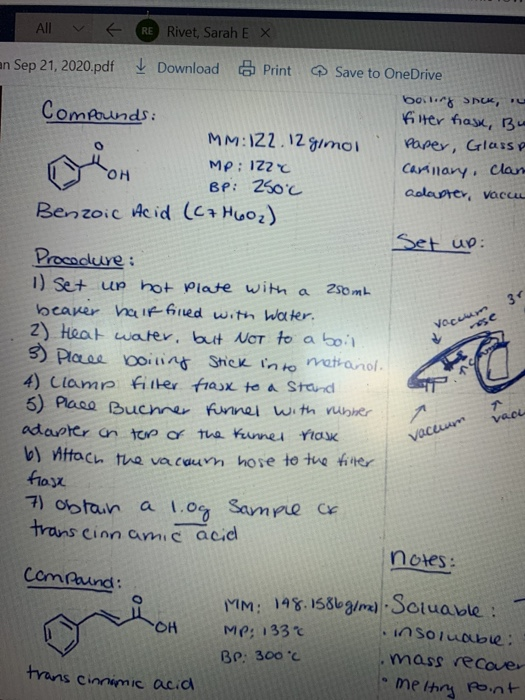 All ← RE Rivet, Sarah E ×
an Sep 21, 2020.pdf Download Print Save to OneDrive
Compounds:
O
OH
MM: 122.12g/mol
MP: 122°C
BP: 250°C
Benzoic Acid (C7H6O2)
Procedure:
1) Set up hot plate with a 250mL
beaker half filled with water.
2) Heat water, but NOT to a boil
3) Place boiling stick into methanol.
4) Clamp filter flask to a stand
5) Place Buchner funnel with rubber
adapter on top of the funnel flask
6) Attach the vacuum hose to the filter
flask
7) obtain a 1.0g Sample of
trans cinnamic acid
Compound:
O
OH
MM: 148.1586g/mol
MP: 133°C
BP: 300°C
trans cinnamic acid
boiling stick,
filter flask, Bu
Paper, Glass P
Capillary, clam
adapter, vacuu
Set up:
vacuum
hose
vacuum
vacu
notes:
• Soluable:
• insoluable:
• mass recover
• melting point